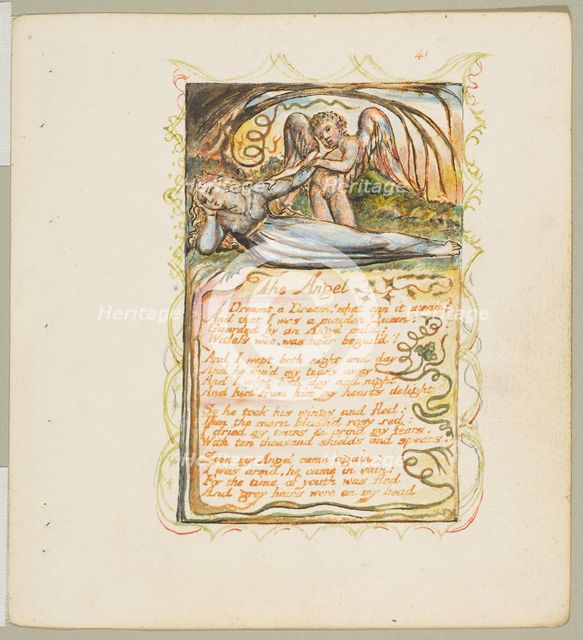 41
The Angel
I Dreamt a Dream! what can it mean?
And that I was a maiden Queen:
Guarded by an Angel mild;
Witless woe, was neer beguil'd!
And I wept both night and day
And he wip'd my tears away
And I wept both day and night
And hid from him my hearts delight
So he took his wings and fled:
Then the morn blush'd rosy red:
I dried my tears & armd my fears,
With ten thousand shields and spears.
Soon my Angel came again:
I was arm'd, he came in vain:
For the time of youth was fled
And grey hairs were on my head
Heritage Images
Heritage